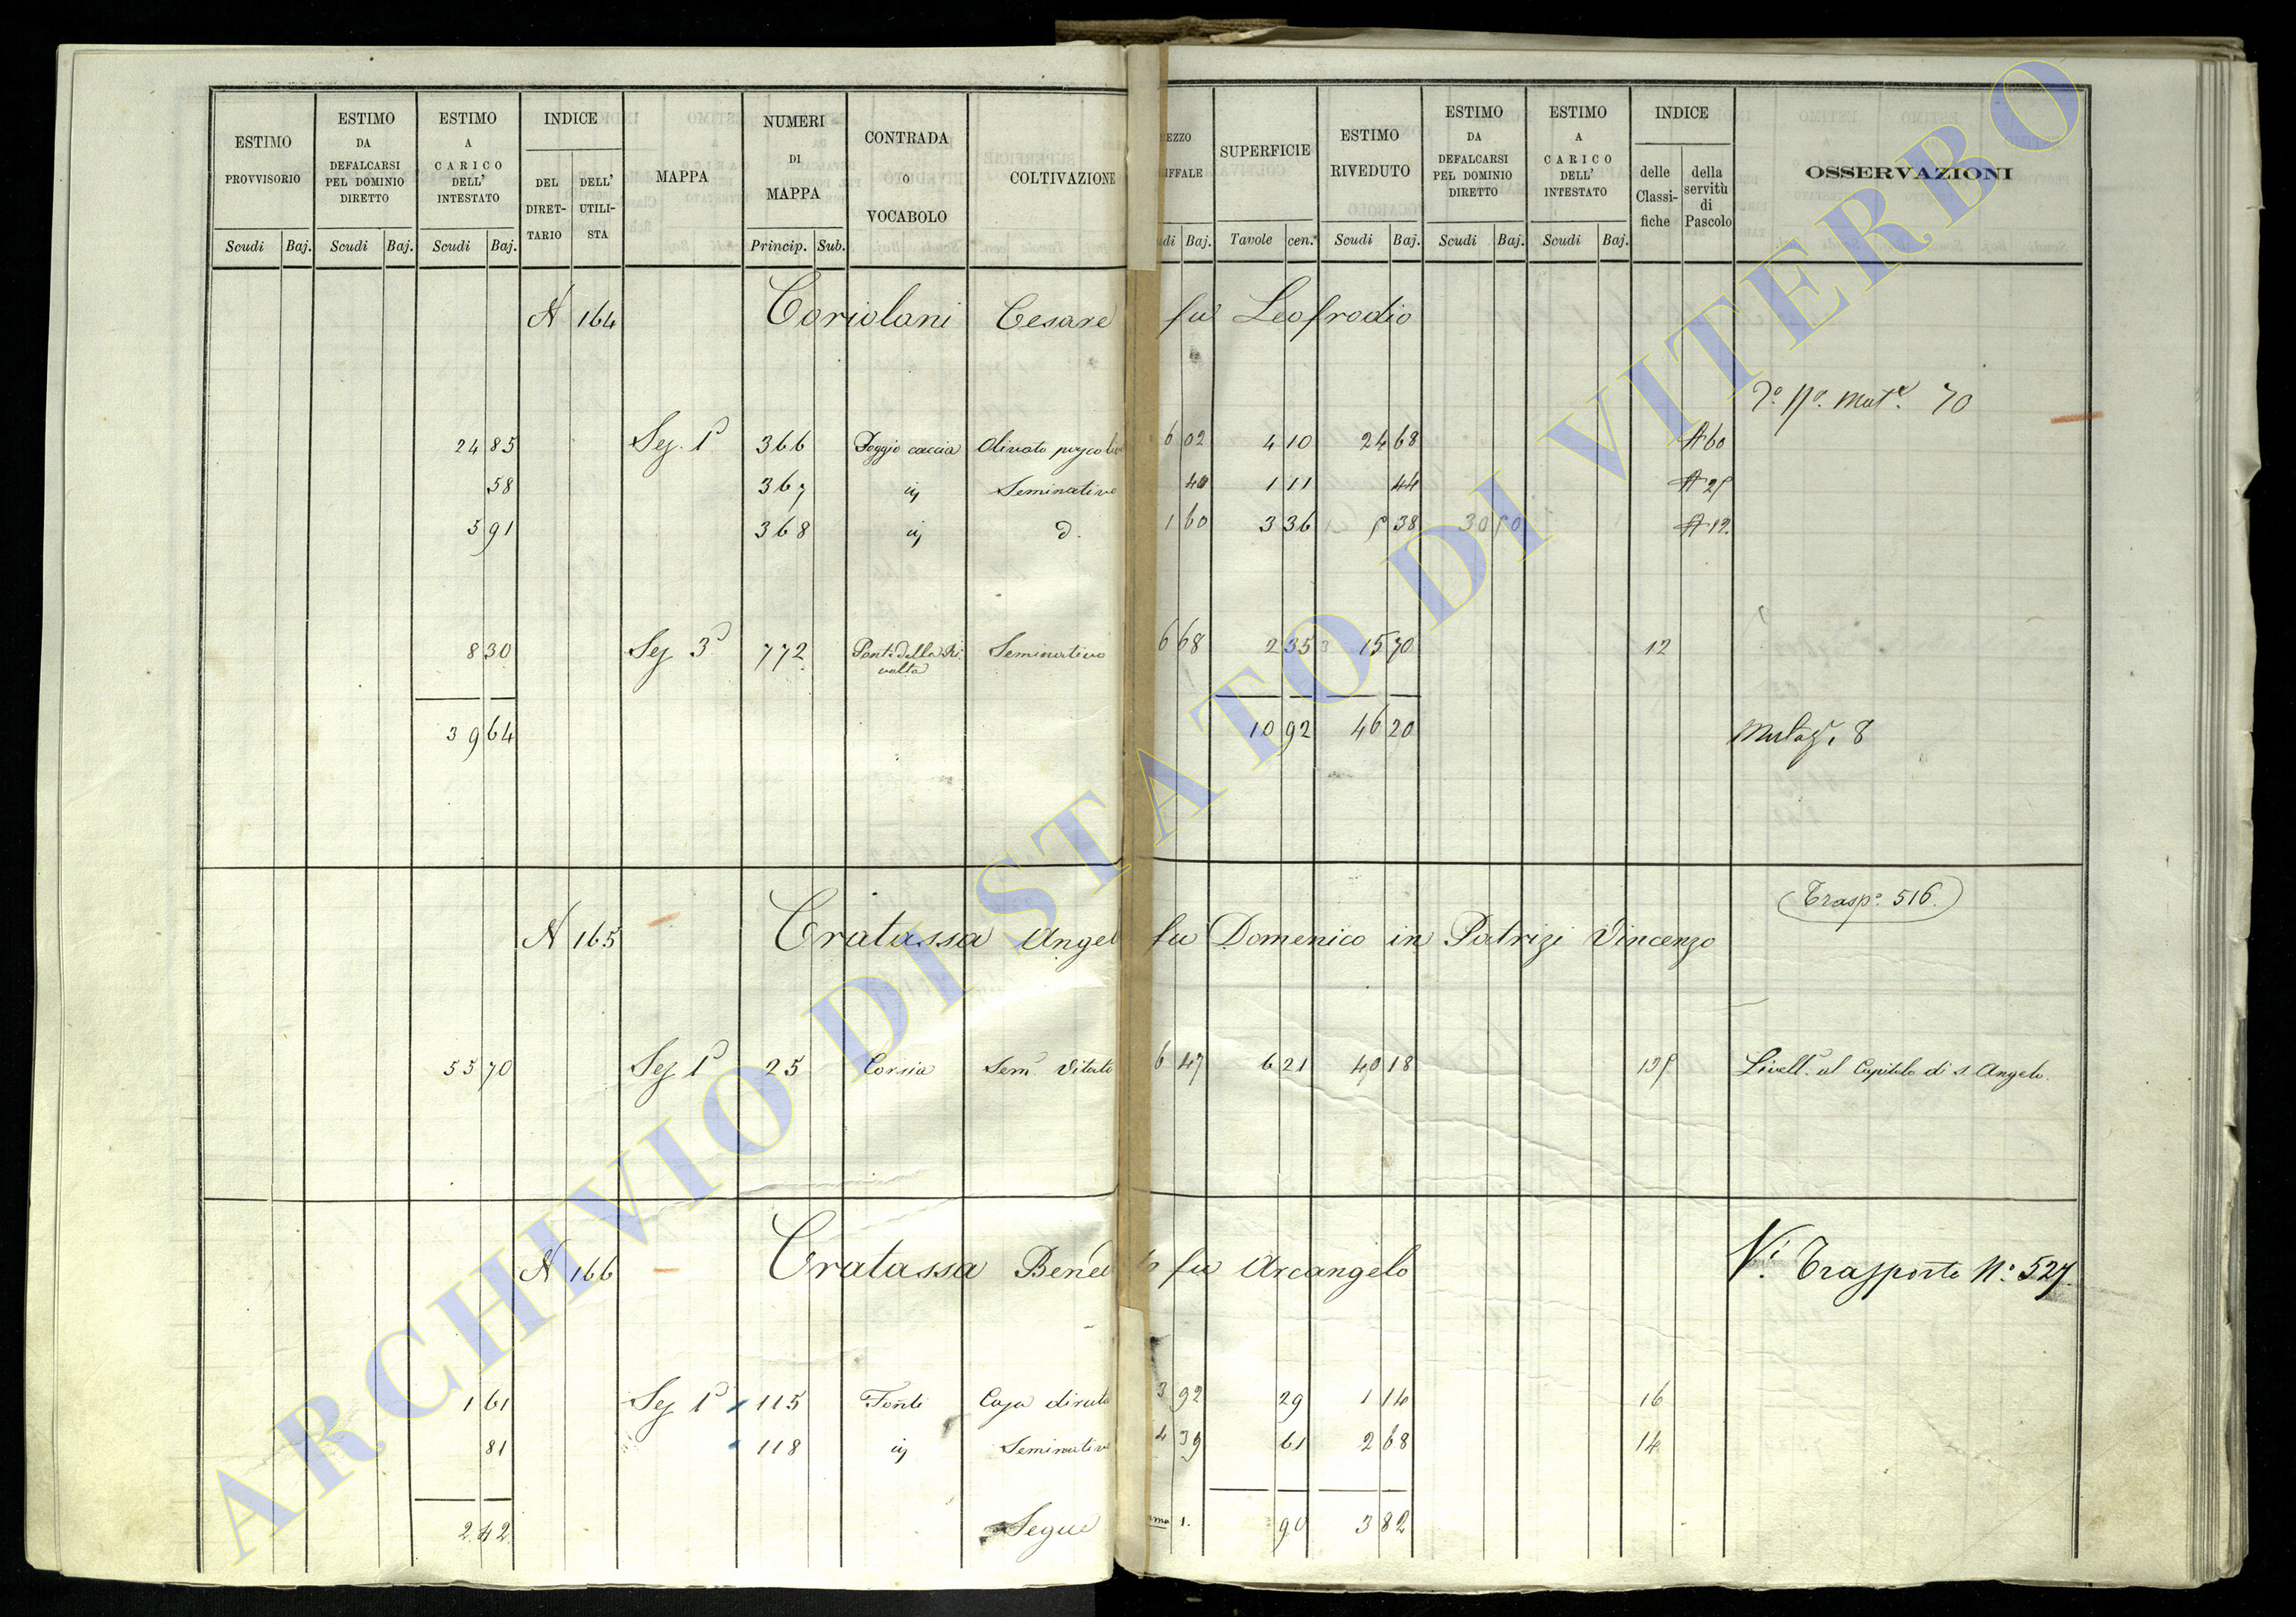 ESTIMO PROVVISORIO
Scudi Baj.
ESTIMO DA DEFALCARSI PEL DOMINIO DIRETTO
Scudi Baj.
ESTIMO A CARICO DELL' INTESTATO
Scudi Baj.
INDICE
DEL DIRET-TARIO
DELL' UTILI-STA
MAPPA
NUMERI DI MAPPA
Princip. Sub.
CONTRADA O VOCABOLO
COLTIVAZIONE
EZZO
IFFALE
di Baj.
SUPERFICIE
Tavole cen.
ESTIMO RIVEDUTO
Scudi Baj.
ESTIMO DA DEFALCARSI PEL DOMINIO DIRETTO
Scudi Baj.
ESTIMO A CARICO DELL' INTESTATO
Scudi Baj.
INDICE
delle Classi-fiche
della servitù di Pascolo
OSSERVAZIONI
A 164 Coriolani Cesare fu Leofrodio
Mut. 70
24 85 Sez. 1ª 366 Poggio caccia Olivato 6 02 4 10 24 68 A 60
58 367 ij Seminativo 40 1 11 44 A 25
5 91 368 ij d. 1 60 3 36 5 38 30 50 A 12
8 30 Sez 3ª 772 Ponte della Rivolta Seminativo 6 68 2 35 15 70 12
39 64 10 92 46 20 8
Trasp.º 516.
A 165 Cratassa Angel fu Domenico in Patrizi Vincenzo
55 70 Sez 1ª 25 Corsia Sem.º Vitato 6 47 6 21 40 18 125 Livell.º al Capitolo di S. Angelo.
A 166 Cratassa Bened fu Arcangelo Vi Trasporto N.º 527.
1 61 Sez 1ª 115 Fonti Casa diruta 3 92 29 1 14 16
81 118 ij Seminativo 4 39 61 2 68 14
2 42 Segue 1. 90 3 82
ARCHIVIO DI STATO DI VITERBO